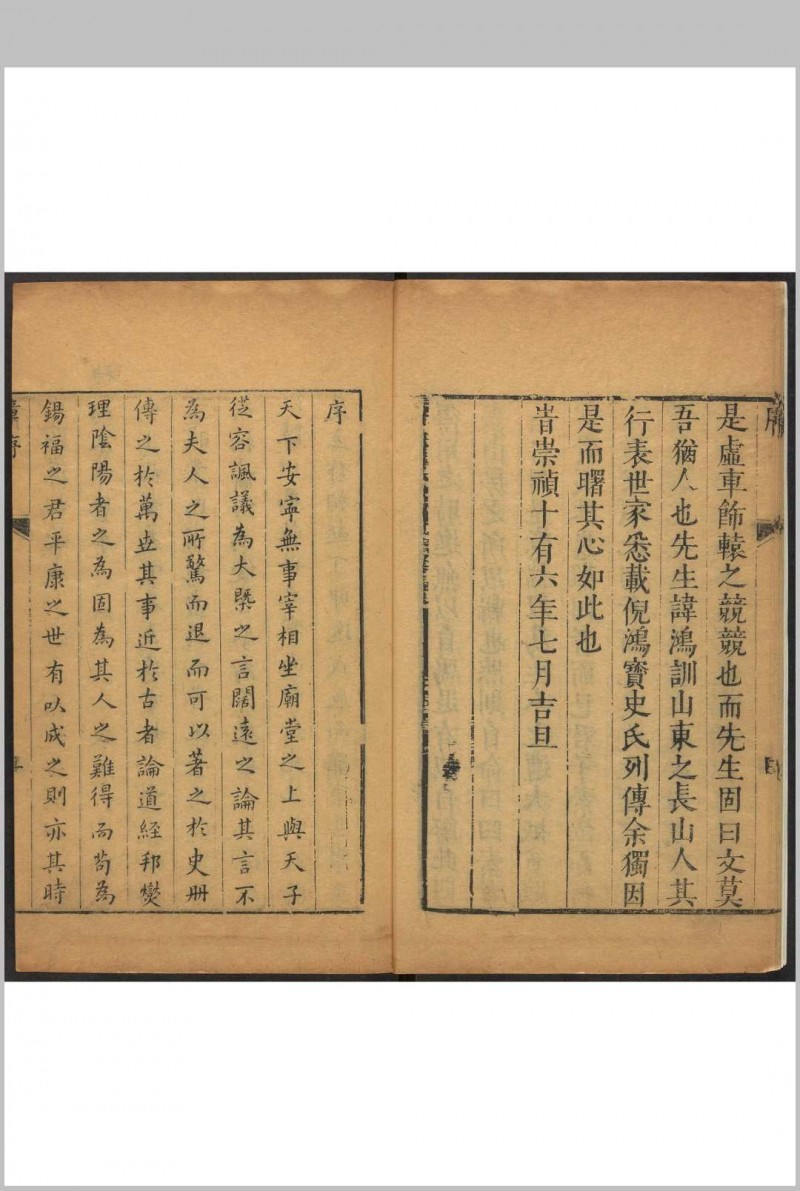 是虛車飾轅之競競也而先生固曰文莫
吾猶人也先生諱鴻訓山東之長山人其
行表世家悉載倪鴻寶史氏列傳余獨因
是而曙其心如此也
旹崇禎十有六年七月吉旦
序
天下安寧無事宰相坐廟堂之上與天子
從容諷議為大槩之言闊遠之論其言不
為夫人之所驚而退而可以著之於史册
傳之於萬世其事近於古者論道經邦燮
理陰陽者之為固為其人之難得而茍為
錫福之君平康之世有以成之則亦其時